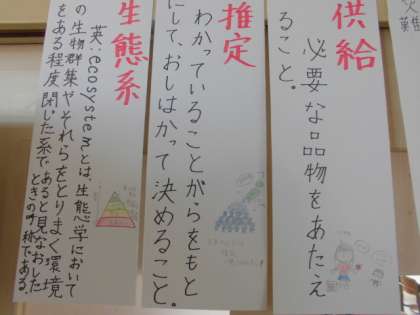 難
供給
必要な品物をあたえ
ること。
推定
わかっていることがらをもと
にして、おしはかって決めること。
生態系
英:ecosystemとは、生態学において
の生物群集やそれらをとりまく環境
をある程度閉じた系であると見なおした
ときの呼称である。